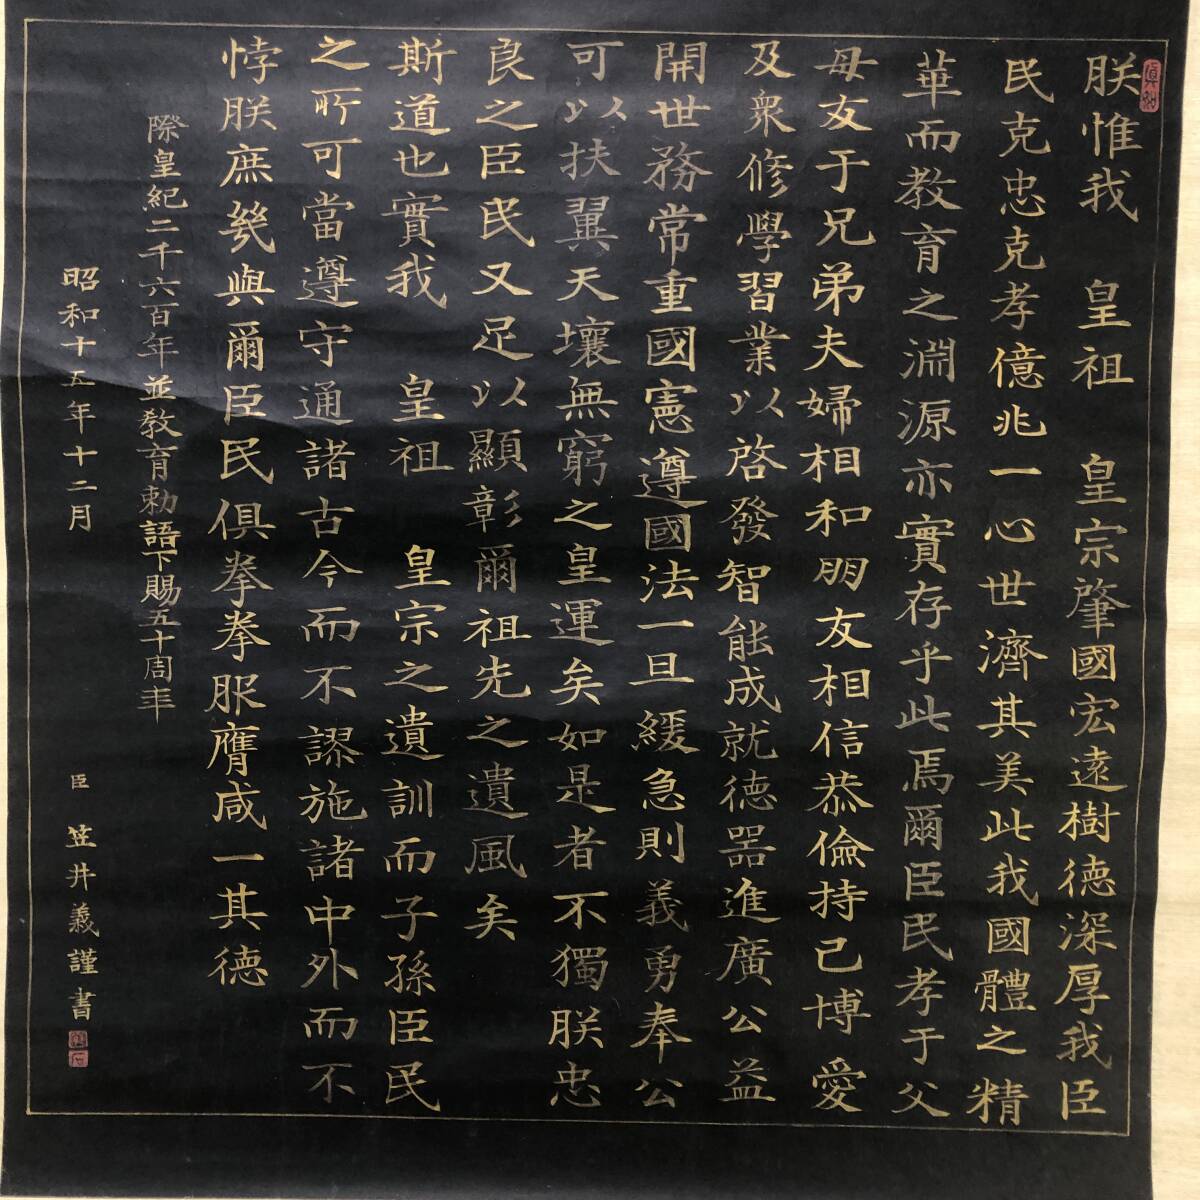 朕惟我　皇祖　皇宗肇國宏遠樹德深厚我臣
民克忠克孝億兆一心世濟其美此我國體之精
華而教育之淵源亦實存乎此焉爾臣民孝于父
母友于兄弟夫婦相和朋友相信恭儉持己博愛
及衆修學習業以啓發智能成就德器進廣公益
開世務常重國憲遵國法一旦緩急則義勇奉公
可以扶翼天壤無窮之皇運矣如是者不獨朕忠
良之臣民又足以顯彰爾祖先之遺風矣
斯道也實我　皇祖　皇宗之遺訓而子孫臣民
之所可當遵守通諸古今而不謬施諸中外而不
悖朕庶幾與爾臣民俱拳拳服膺咸一其德
際皇紀二千六百年並教育勅語下賜五十周年
昭和十五年十二月
臣 笠井義謹書